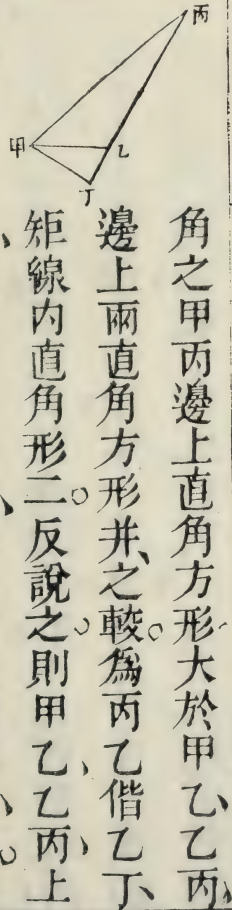 丙
甲
乙
丁
角之甲丙邊上直角方形大於甲乙、乙丙、
邊上兩直角方形并、之較。為丙乙偕乙丁、
矩線内直角形二。反說之。則甲乙、乙丙上